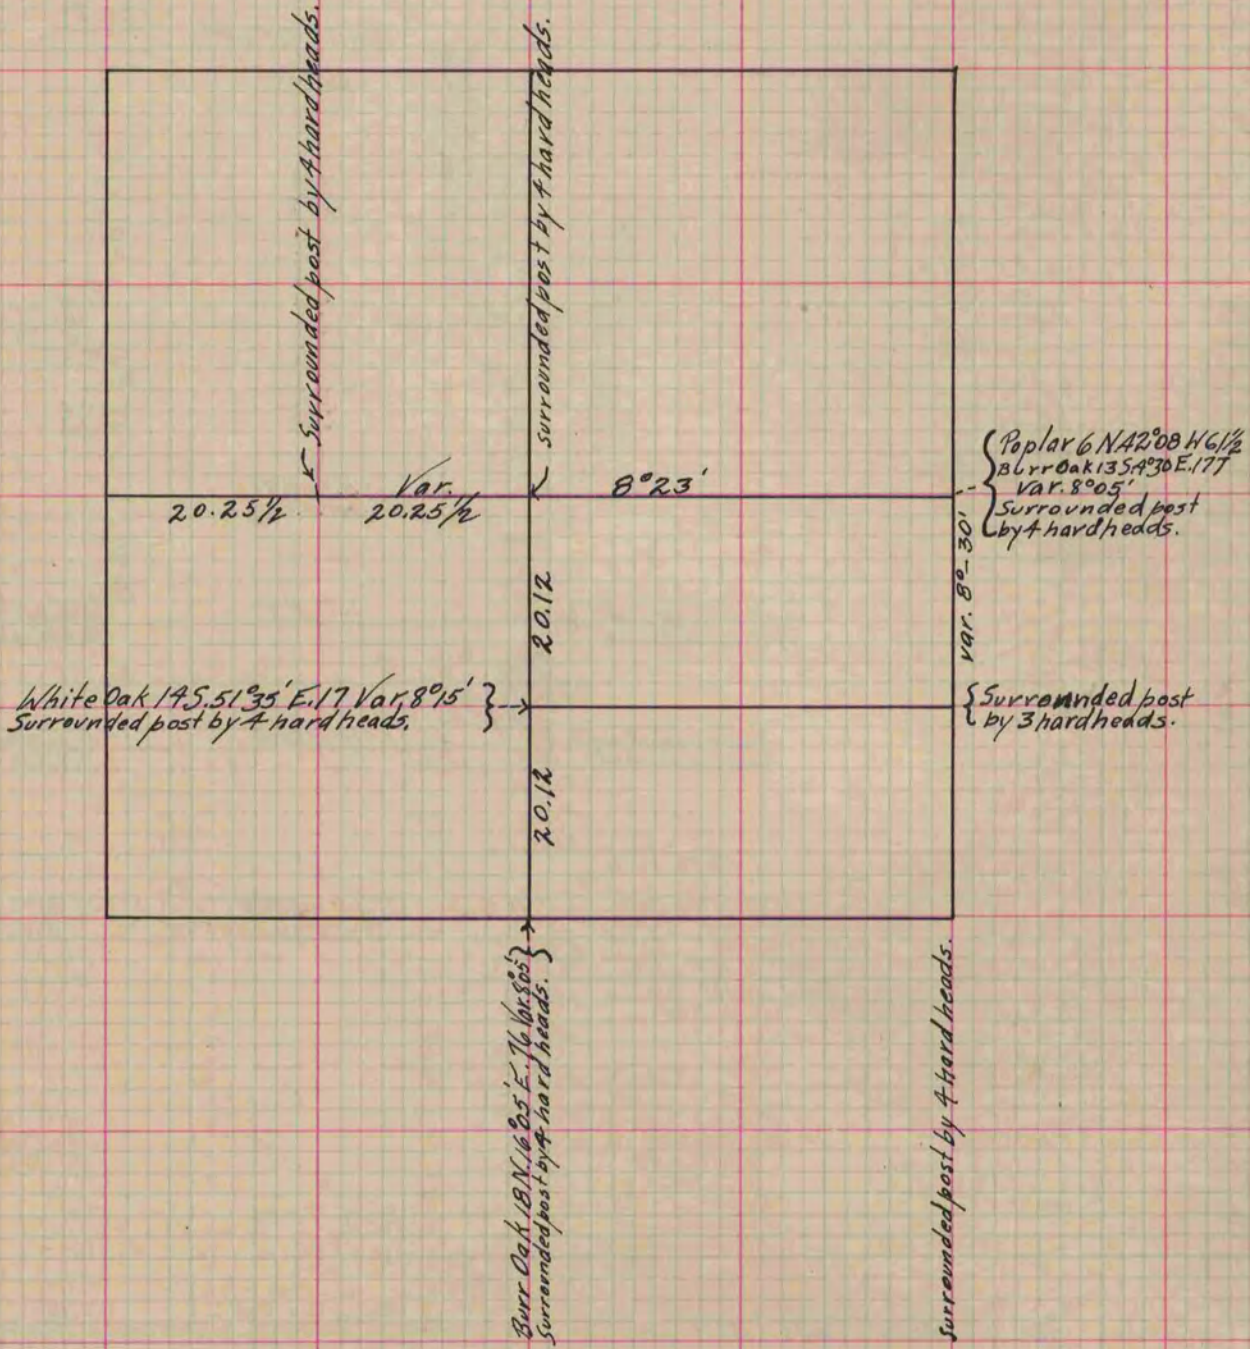 Surrounded post by 4 hard heads.
surrounded post by 4 hard heads.
Var.
8°23'
20.25½
20.25½
Poplar 6 N42°08 W61½
Burr Oak 13 S4°30 E.177
Var. 8°05'
Surrounded post
by 4 hard heads.
var. 8°-30'
20.12
White Oak 14 S.51°35' E.17 Var, 8°15'
Surrounded post by 4 hard heads.
Surrounded post
by 3 hard heads.
20.12
Burr Oak 18 N.16°05' E.76 Var.8°05'
Surrounded post by 4 hard heads.
Surrounded post by 4 hard heads.